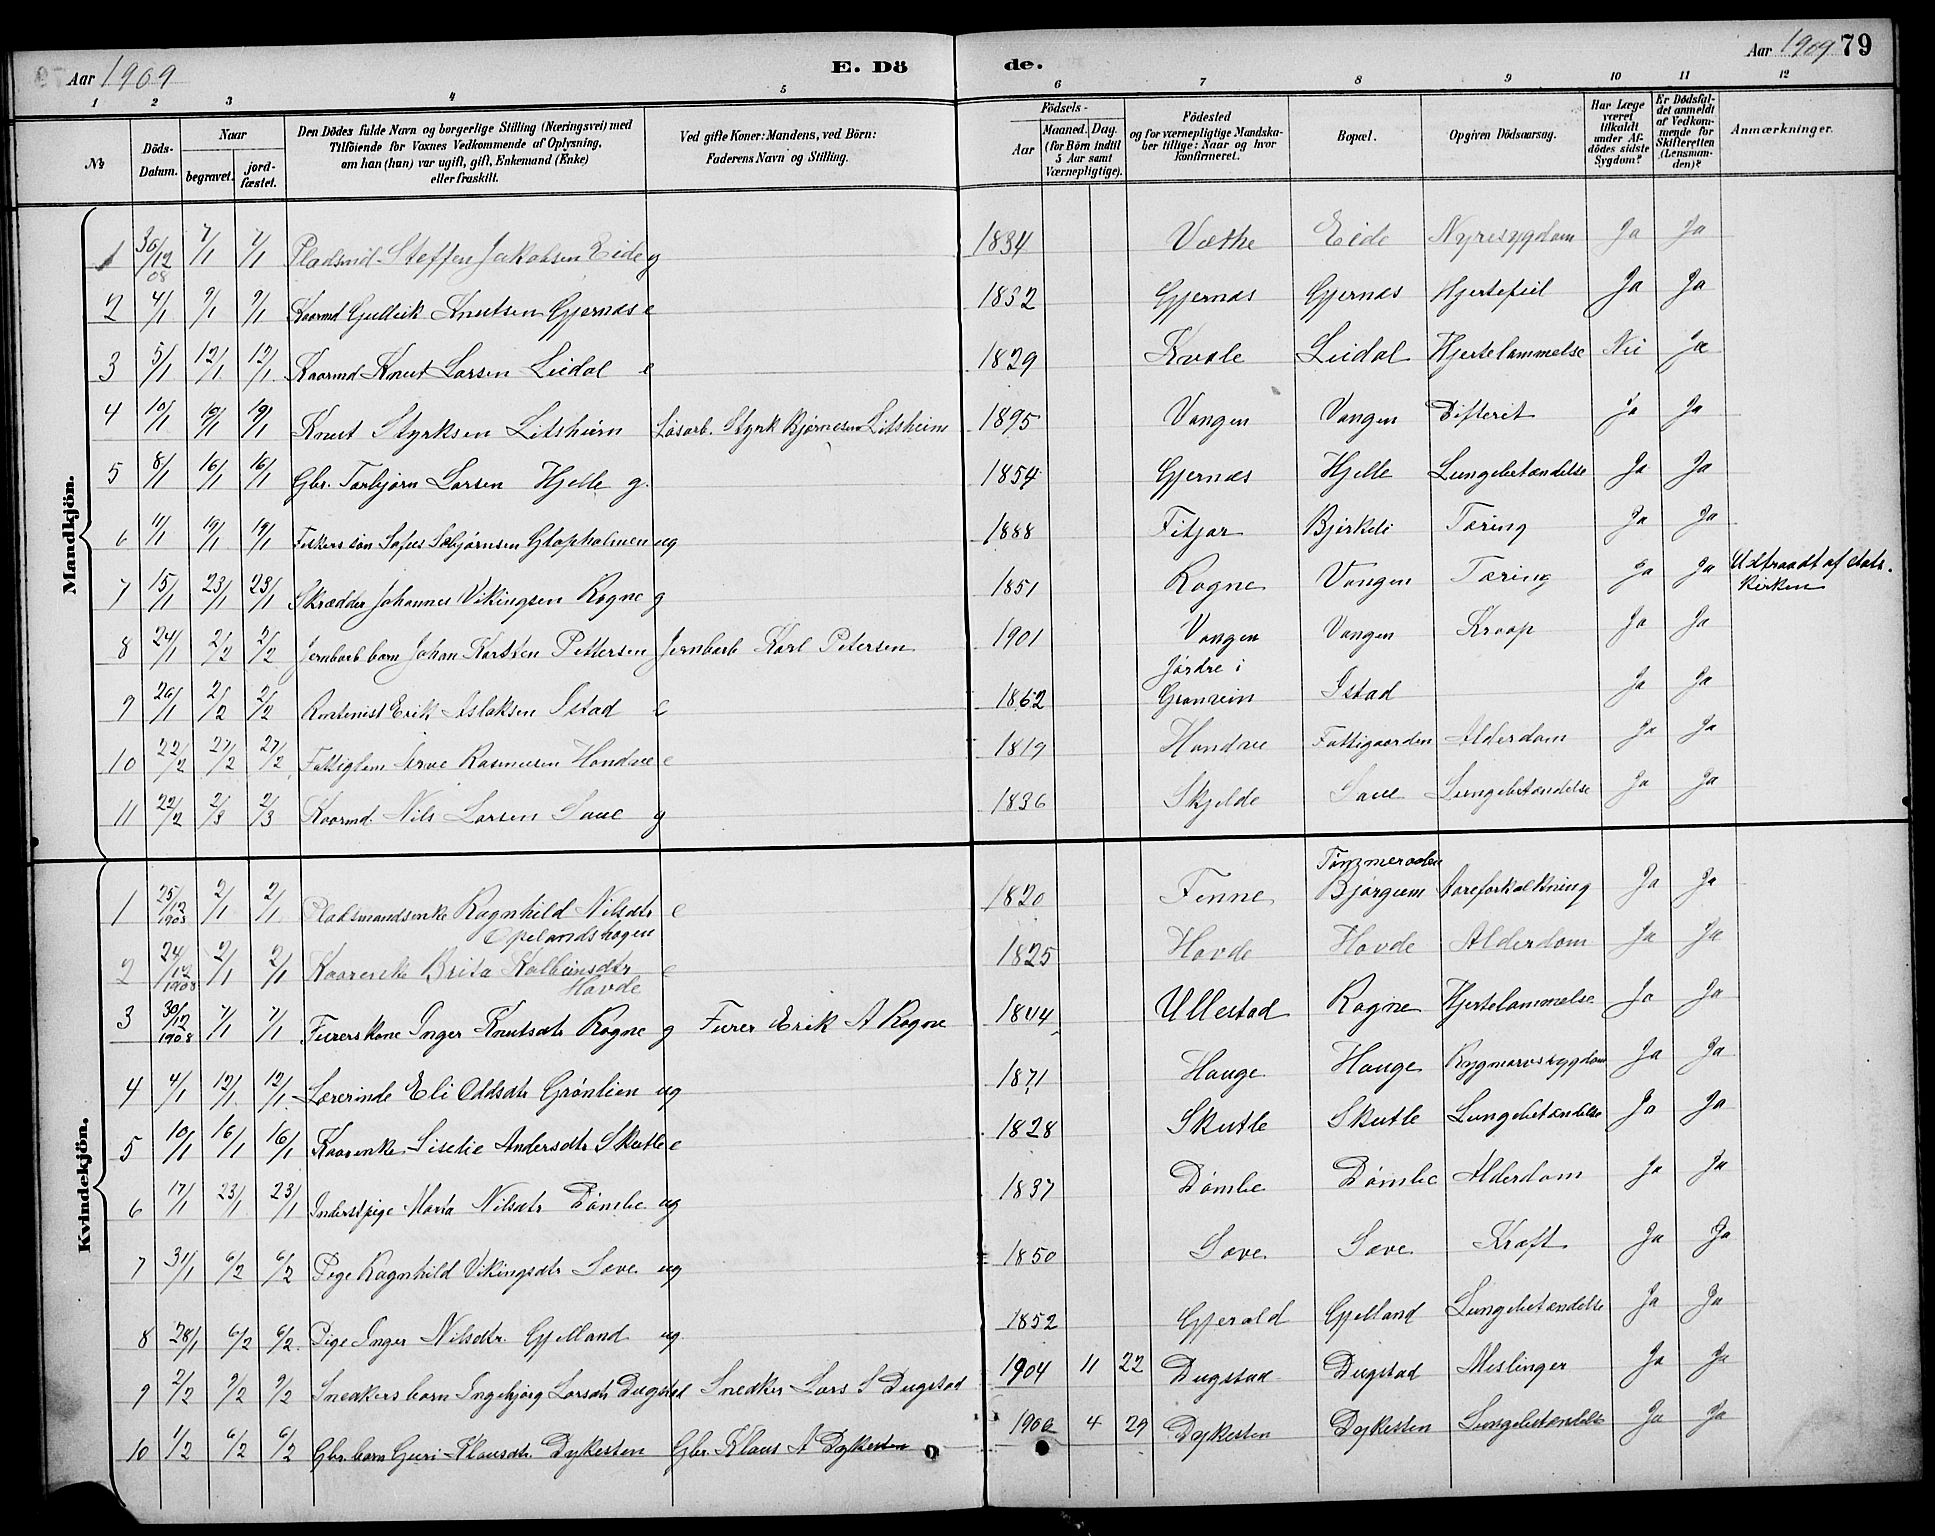 Aar 1909
E. Dö
de.
Aar 1909 79
1 2 3 4 5 6 7 8 9 10 11 12
№
Döds-Datum.
Naar
begravet.
jord-fæstet.
Den Dödes fulde Navn og borgerlige Stilling (Næringsvei) med
Tilföiende for Voxnes Vedkommende af Oplysning,
om han (hun) var ugift, gift, Enkemand (Enke)
eller fraskilt.
Ved gifte Koner: Mandens, ved Börn:
Faderens Navn og Stilling.
Födsels-
Aar
Maaned. Dag.
(for Börn indtil
5 Aar samt
Værnepligtige).
Födested
og for værnepligtige Mandska-
ber tillige: Naar og hvor
konfirmeret.
Bopæl.
Opgiven Dödsaarsag.
Har Læge
været
tilkaldt
under Af-
dödes sidste
Sygdom?
Er Dödsfal-
det anmeldt
af Vedkom-
mende for
Skifteretten
(Lensman-
den)?
Anmærkninger.
Mandkjön.
1 30/12 08 7/1 7/1 Pladsmd. Steffen Jakobsen Eide g 1834 Væthe Eide Nyresygdom Ja Ja
2 4/1 9/1 9/1 Kaarmd Gulleik Knutsen Gjernæs e 1832 Gjernæs Gjernæs Hjertefeil Ja Ja
3 5/1 12/1 12/1 Kaarmd Knut Larsen Lidal e 1829 Kvale Lidal Hjertelammelse Nei Ja
4 10/1 19/1 19/1 Knut Styrksen Litsheim Løsarb. Styrk Bjørnesen Litsheim 1895 Vangen Vangen Difterit Ja Ja
5 8/1 16/1 16/1 Gbr. Torbjørn Larsen Hjelle g. 1854 Gjernæs Hjelle Lungebetændelse Ja Ja
6 11/1 19/1 19/1 Fiskers søn Sofus Glopholmen ug 1888 Fitjar Bjørkeli Tæring Ja Ja
7 15/1 23/1 23/1 Skrædder Johannes Vikingsen Rogne g 1851 Rogne Vangen Tæring Ja Ja Udtraadt af stats-
kirken
8 24/1 2/2 2/2 Jernbarb. barn Johan Karsten Pettersen Jernbarb Karl Petersen 1901 Vangen Vangen Kroop Ja Ja
9 26/1 2/2 2/2 Rentenist Erik Aslaksen Istad e 1862 Jørdre i
Granvin Istad Ja Ja
10 22/2 27/2 27/2 Fattiglem Arve Rasmusen Hondve e 1819 Hondve Fattigaarden Alderdom Ja Ja
11 22/2 2/3 2/3 Kaarmd. Nils Larsen Saue g 1836 Skjelde Saue Lungebetændelse Ja Ja
Kvindekjön.
1 25/12 1908 2/1 2/1 Pladsmandsenke Ragnhild Nilsdtr e
Opelandshagen 1820 Fenne
Bjørgum Aareforkalkning Ja Ja
2 24/12 1908 2/1 2/1 Kaarenke Brita Kolbeinsdtr e
Hovde 1825 Hovde Hovde Alderdom Ja Ja
3 30/12 1908 7/1 7/1 Furerskone Inger Knutsdtr Rogne g Furer Erik A Rogne 1844 Ullestad Rogne Hjertelammelse Ja Ja
4 4/1 12/1 12/1 Lærerinde Eli Oddsdtr Grønlien ug 1871 Hauge Hauge Rygmarvssygdom Ja Ja
5 10/1 16/1 16/1 Kaarenke Siselie Andersdtr Skutle e 1828 Skutle Skutle Lungebetændelse Ja Ja
6 17/1 23/1 23/1 Inderstpige Marta Nilsdtr Dømbe ug 1837 Dømbe Dømbe Alderdom Ja Ja
7 31/1 6/2 6/2 Pige Ragnhild Vikingsdtr Sæve ug 1850 Sæve Sæve Kræft Ja Ja
8 28/1 6/2 6/2. Pige Inger Nilsdtr. Gjelland ug 1852 Gjerald Gjelland Lungebetændelse Ja Ja
9 2/2 9/2 9/2 Snedkers barn Ingebjørg Larsdtr Dugstad Snedker Lars S Dugstad 1904 11 22 Dugstad Dugstad Meslinger Ja Ja
10 1/2 6/2 6/2 Gbr. barn Guri Klausdtr. Dykesten Gbr. Klaus A Dykesten 4 29 Dykesten Dykesten Lungebetændelse Ja Ja